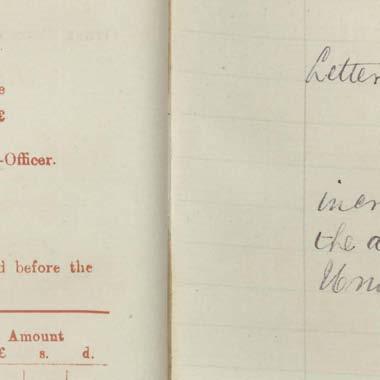 e
£
-Officer.
d before the
Amount
£ s. d.
Letter
incr
the a